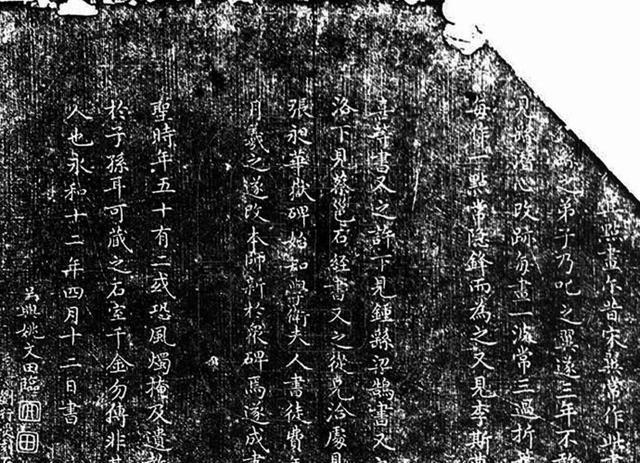 點畫尔昔宋翼常作此
繇之弟子乃叱之翼遂三年不敢
見繇潛心改跡每畫一波常三過折
每作一點常隱鋒而為之又見李斯
喜等書又之許下見鍾繇梁鵠書又
洛下見蔡邕石經書又之從兄洽處見
張昶華嶽碑始知學衛夫人書徒費
月羲之遂改本師新於眾碑焉遂成書
聖時年五十有二或恐風燭掩及遺教
於子孫耳可蔵之石室千金勿傳非其
人也永和十二年四月十二日書
吳興姚文田臨
劉行